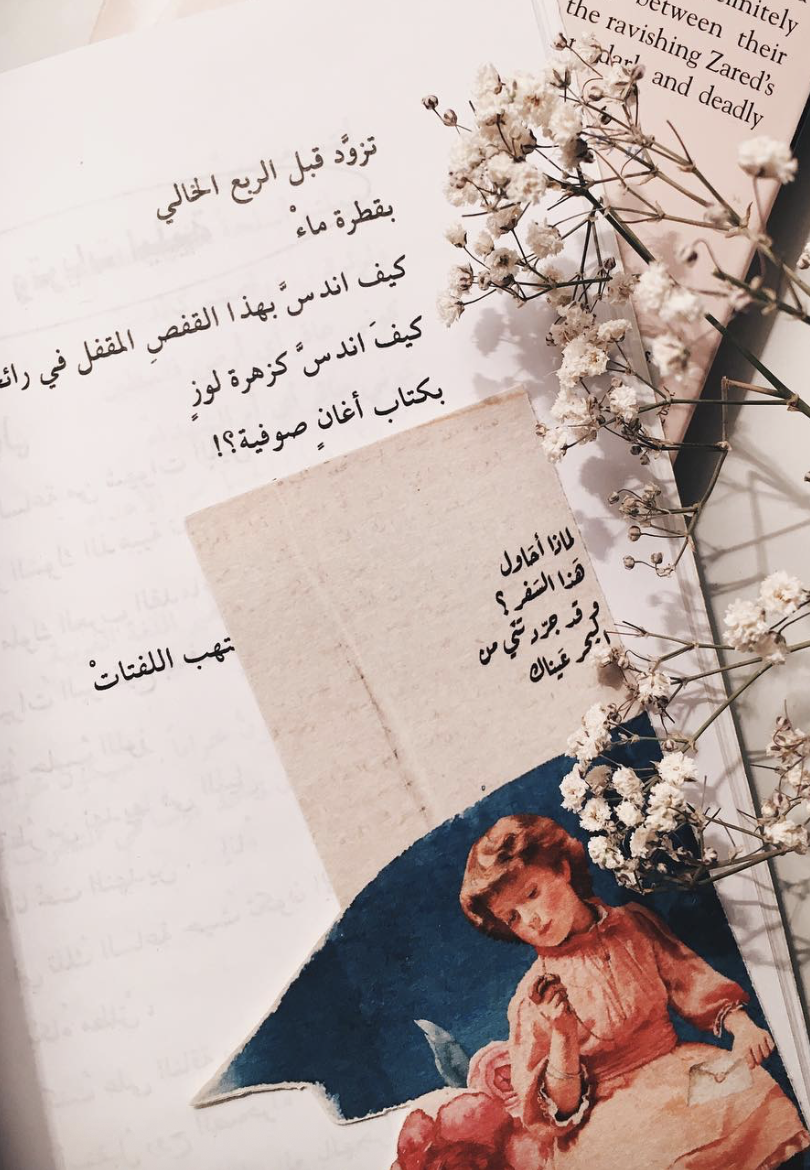 between their
the ravishing Zared's
dark and deadly
تزوَّد قبل الربع الخالي
بقطرة ماءْ
كيف اندسَّ بهذا القفصِ المقفل في
كيفَ اندسَّ كزهرة لوزٍ
بكتاب أغانٍ صوفية؟!
لماذا أحَاول
هَذا السَفر؟
و قد جرّدتني من
عَيناك
تهب اللفتاتْ